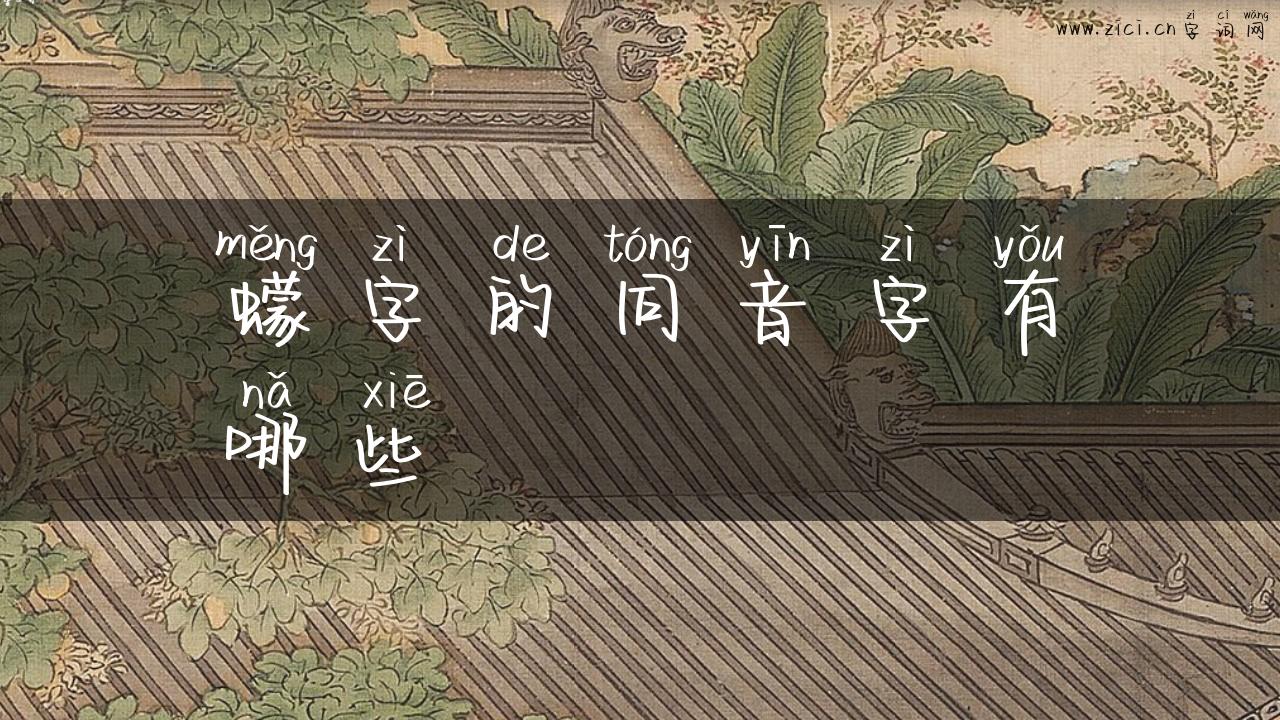 zì cí wǎng
www.zici.cn 字词网
měng zì de tóng yīn zì yǒu
蠓字的同音字有
nǎ xiē
哪些